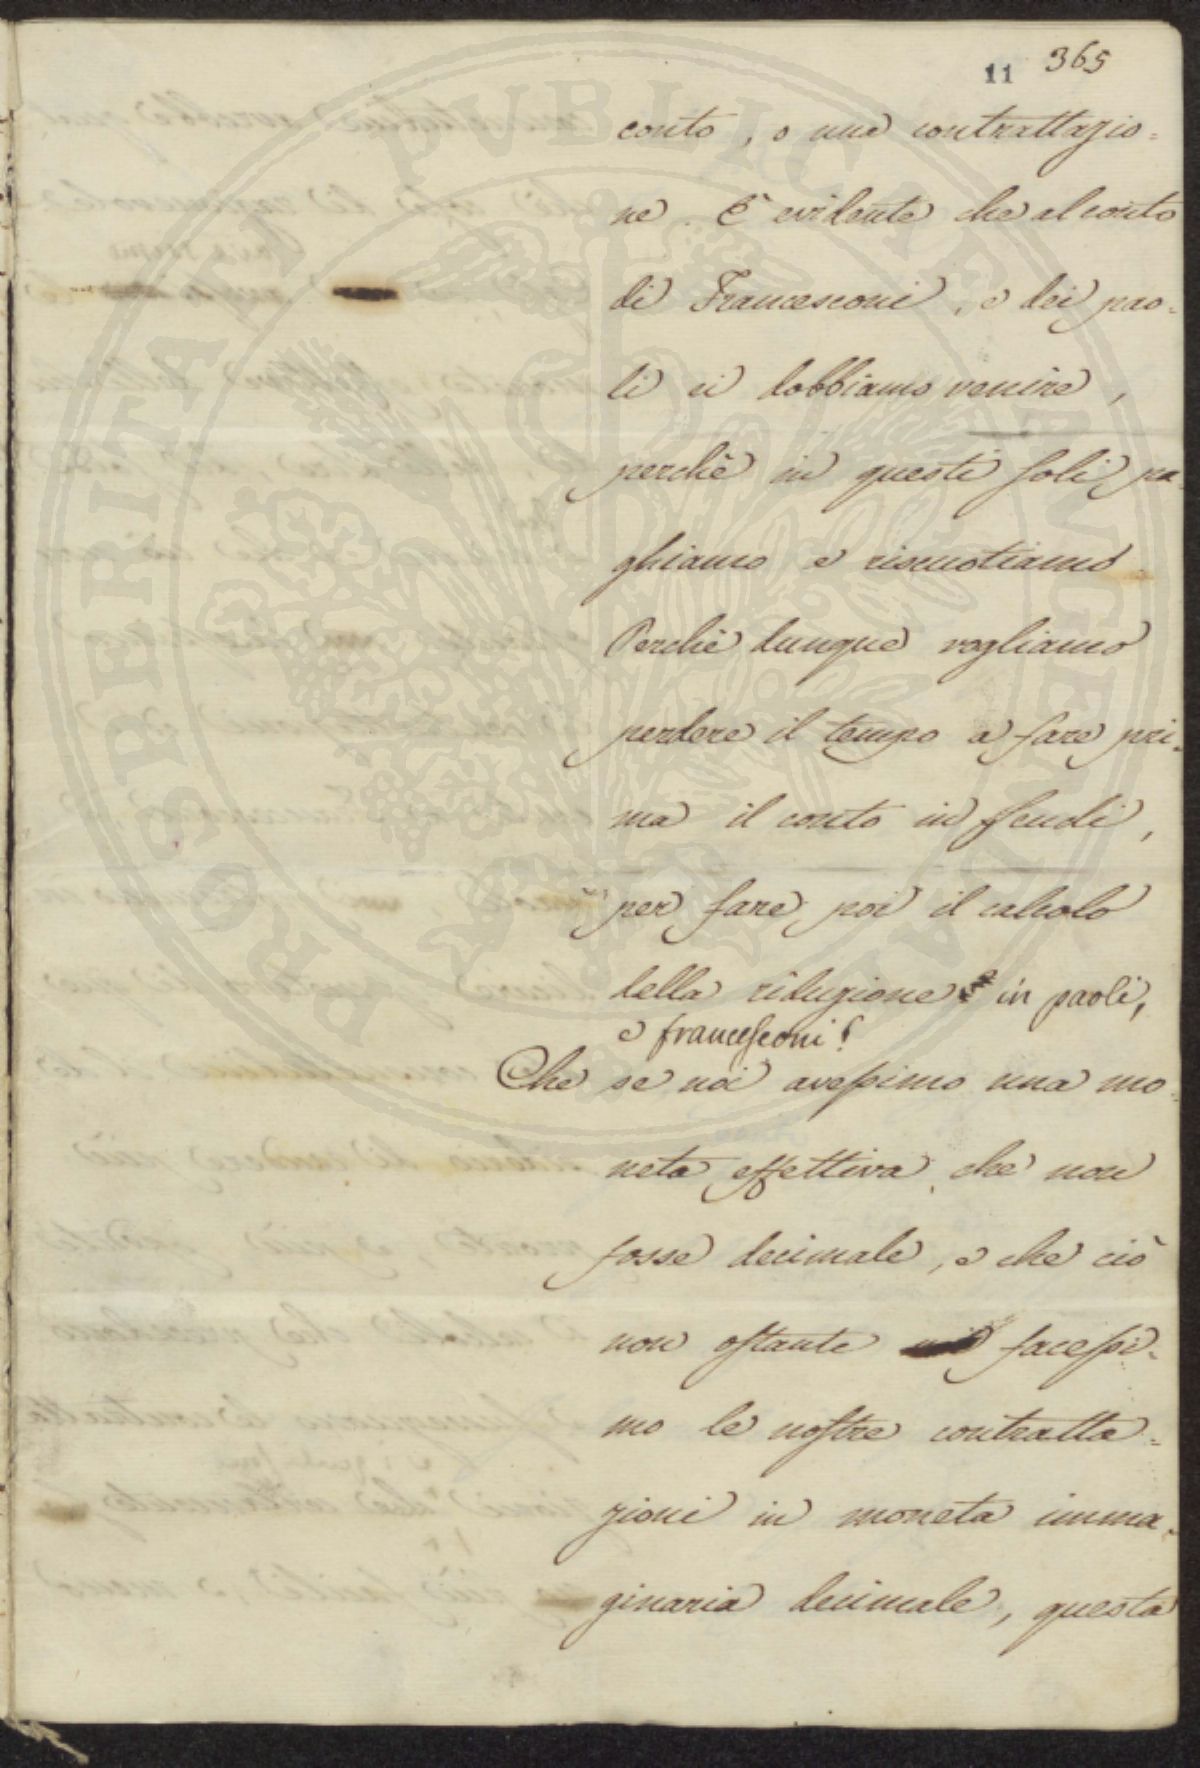 11 365
conto, o una contrattazio=
ne. È evidente che al conto
di Francesconi, e dei pao=
li ci dobbiamo venire,
perchè in questi soli pa=
ghiamo e riscuotiamo
Perchè dunque vogliamo
perdere il tempo a fare pri=
ma il conto in scudi,
per fare poi il calcolo
della riduzione in paoli,
e francesconi?
Che se noi avessimo una mo=
neta effettiva, che non
fosse decimale, e che ciò
non ostante facessi=
mo le nostre contratta=
zioni in moneta imma=
ginaria decimale, questa
PROSPERITATI PVBLICAE AVGENDAE